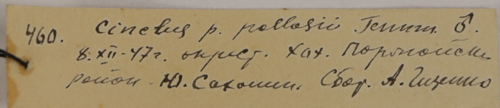 460. Cinclus p. pallasii Temm. ♂.
8.XII-47г. окрест. Хах.
район. Ю. Сахалин. Сбор. А. Гизенко